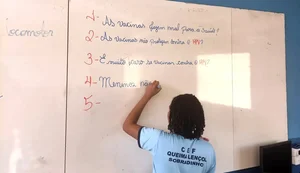 ocomoton
1- As vacinas fazem mal para a saúde?
2- As vacinas não protegem contra o HPV?
3- É muito caro se vacinar contra o HPV?
4- Meninos não
5-
CEF
QUEIMA LENÇOL
SOBRADINHO